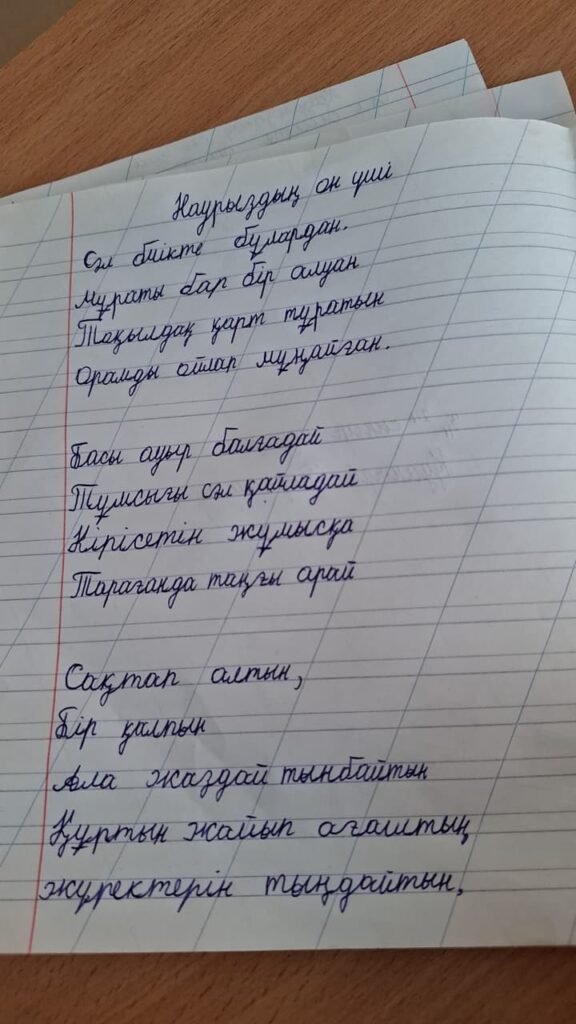 Наурыздың он үші
Сәл биікте бұлардан.
Мұраты бар бір алуан
Тоқылдақ қарт тұратын
Орамды ойлар мұңайған.
Басы ауыр балғадай
Тұмсығы сәл қайладай
Кірісетін жұмысқа
Тарағанда таңғы арай
Сақтап алтын,
Бір қалпын
Ала жаздай тынбайтын
Құртын жайып ағаштың
жүректерін тыңдайтын,